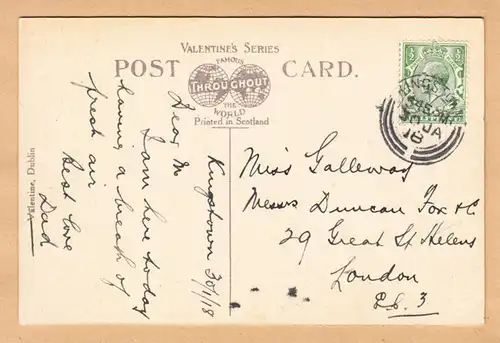 VALENTINE'S SERIES
POST CARD.
FAMOUS
THROUGHOUT
THE
WORLD
Printed in Scotland
Valentine, Dublin
Kingstown 30/1/18
Dear M
I am here today
having a breath of
fresh air
Best love
Dad
Miss Galleway
Messrs Duncan Fox & C
29 Great St Helens
London
E.C. 3
445 PM
30 JA
18